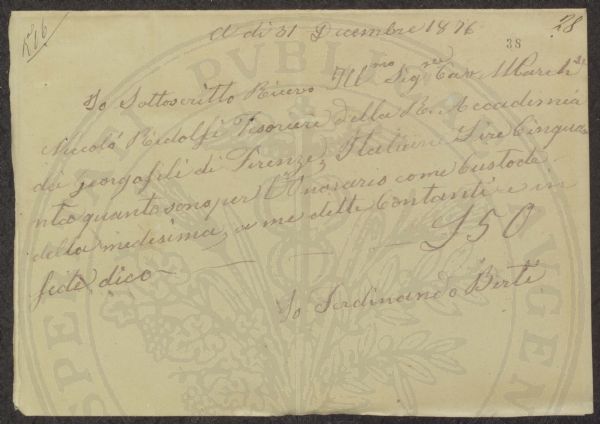 N° 66
A di 31 Dicembre 1876
28
38
Io Sottoscritto Ricevo Ill.mo Sig.re Cav. March.se
Niccolò Ridolfi Tesoriere della R. Accademia
dei georgofili di Firenze, Italiane Lire Cinqua=
nta quanto sono per Onorario come Custode
della medesima, a me dette Contanti e in
fede dico — £50
Io Ferdinando Berti
PUBLICAE
PROSPERITATI
AUGENDAE